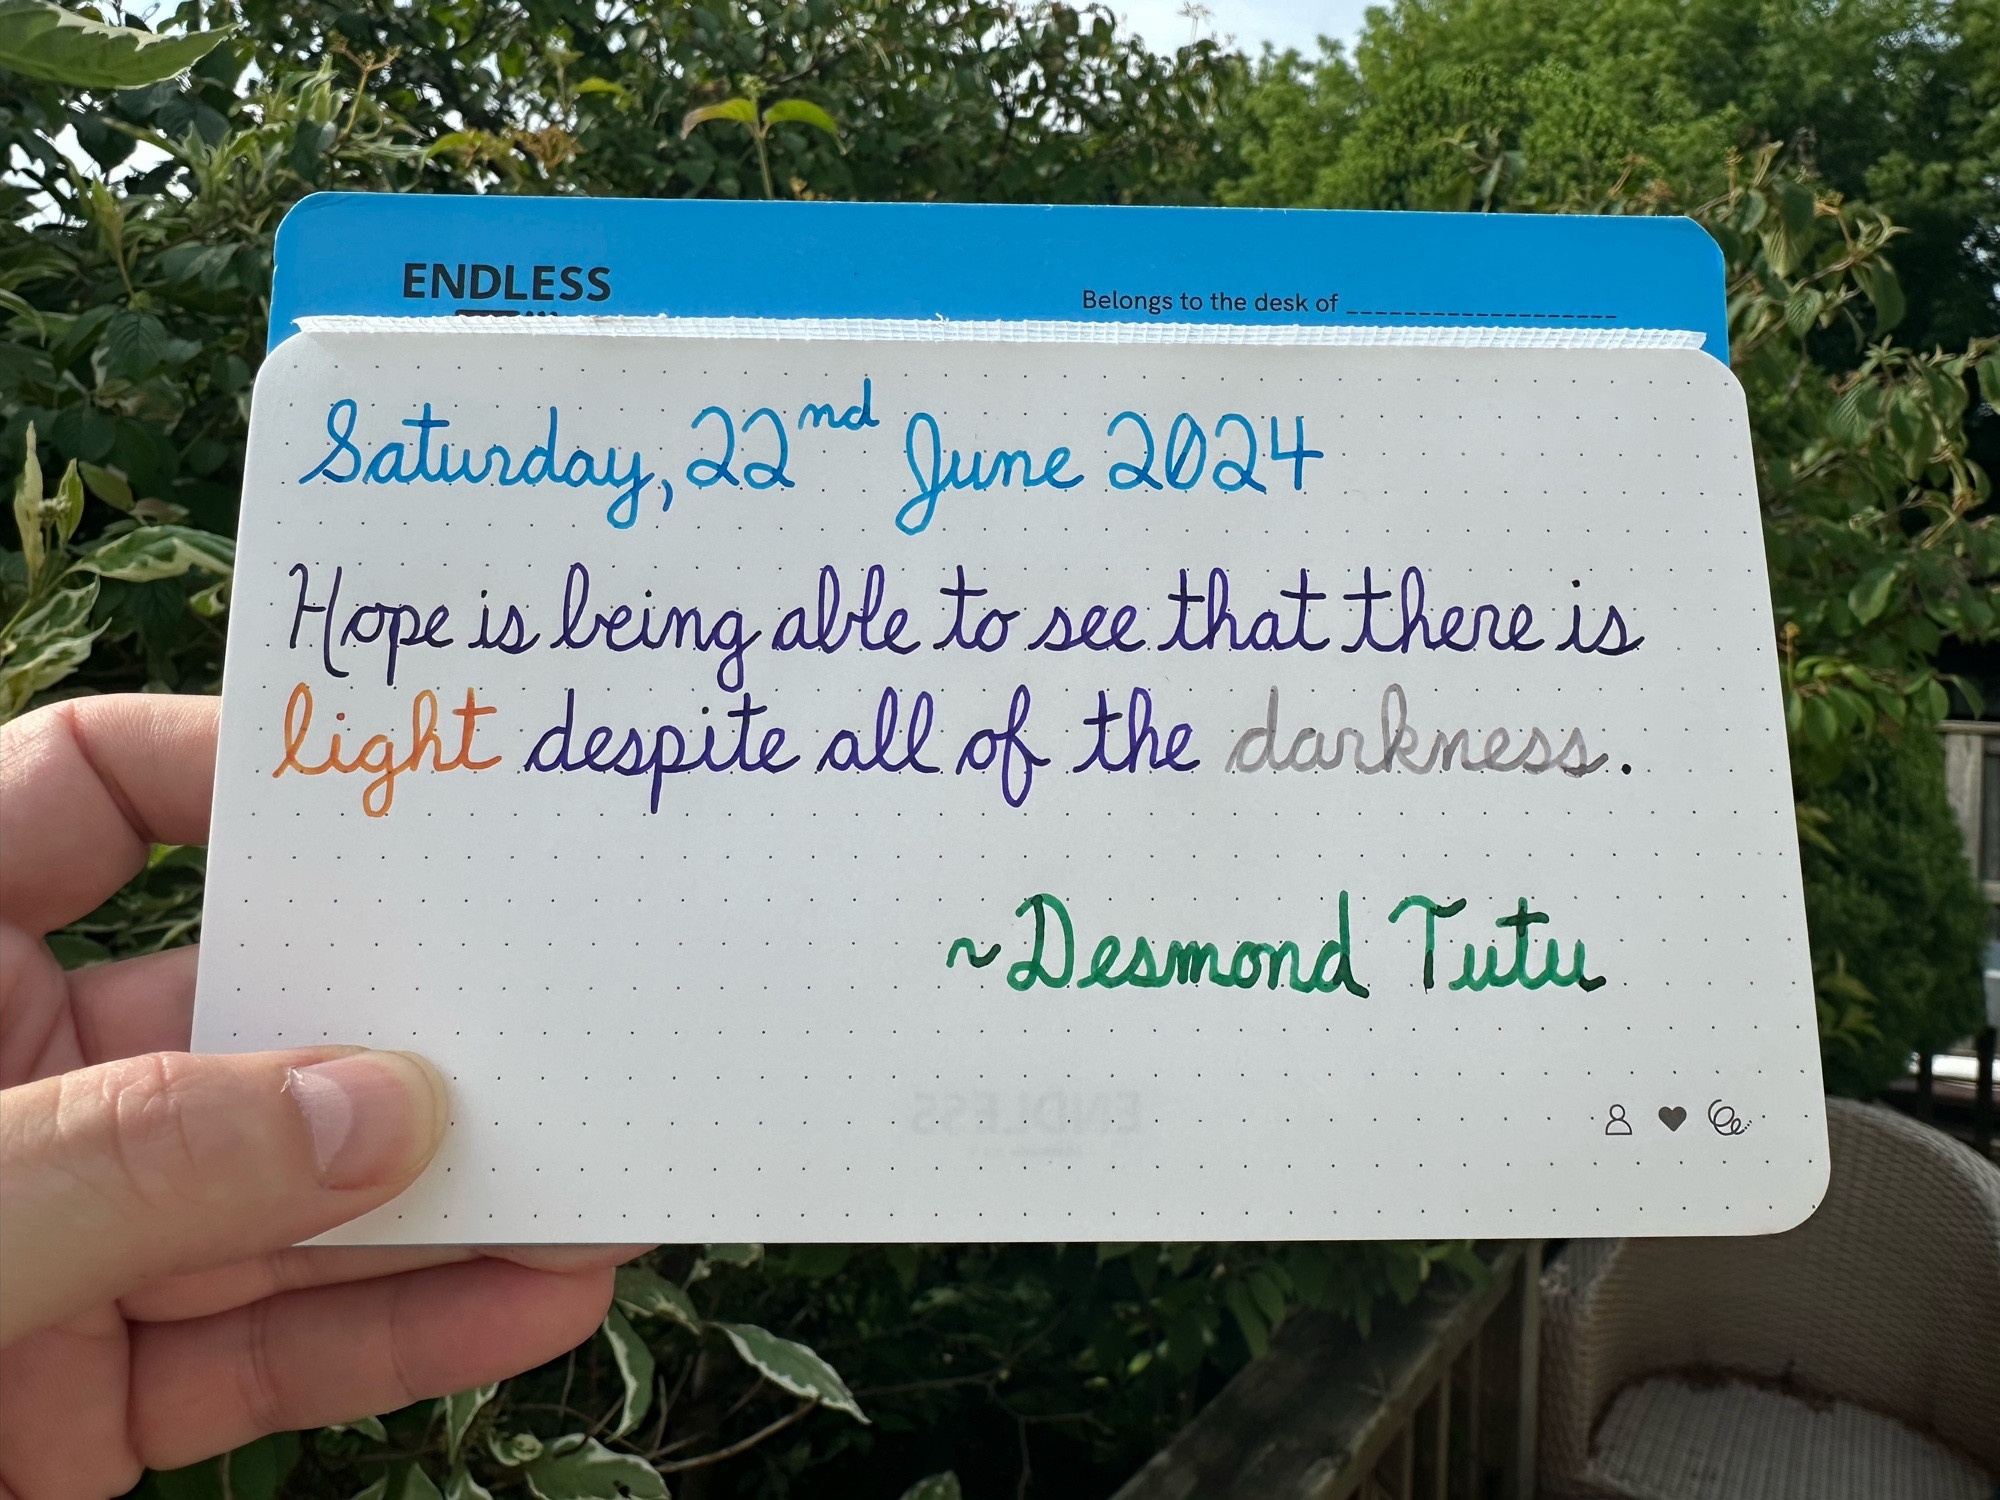 ENDLESS
Belongs to the desk of ___________________
Saturday, 22nd June 2024
Hope is being able to see that there is
light despite all of the darkness.
~Desmond Tutu
ENDLESS